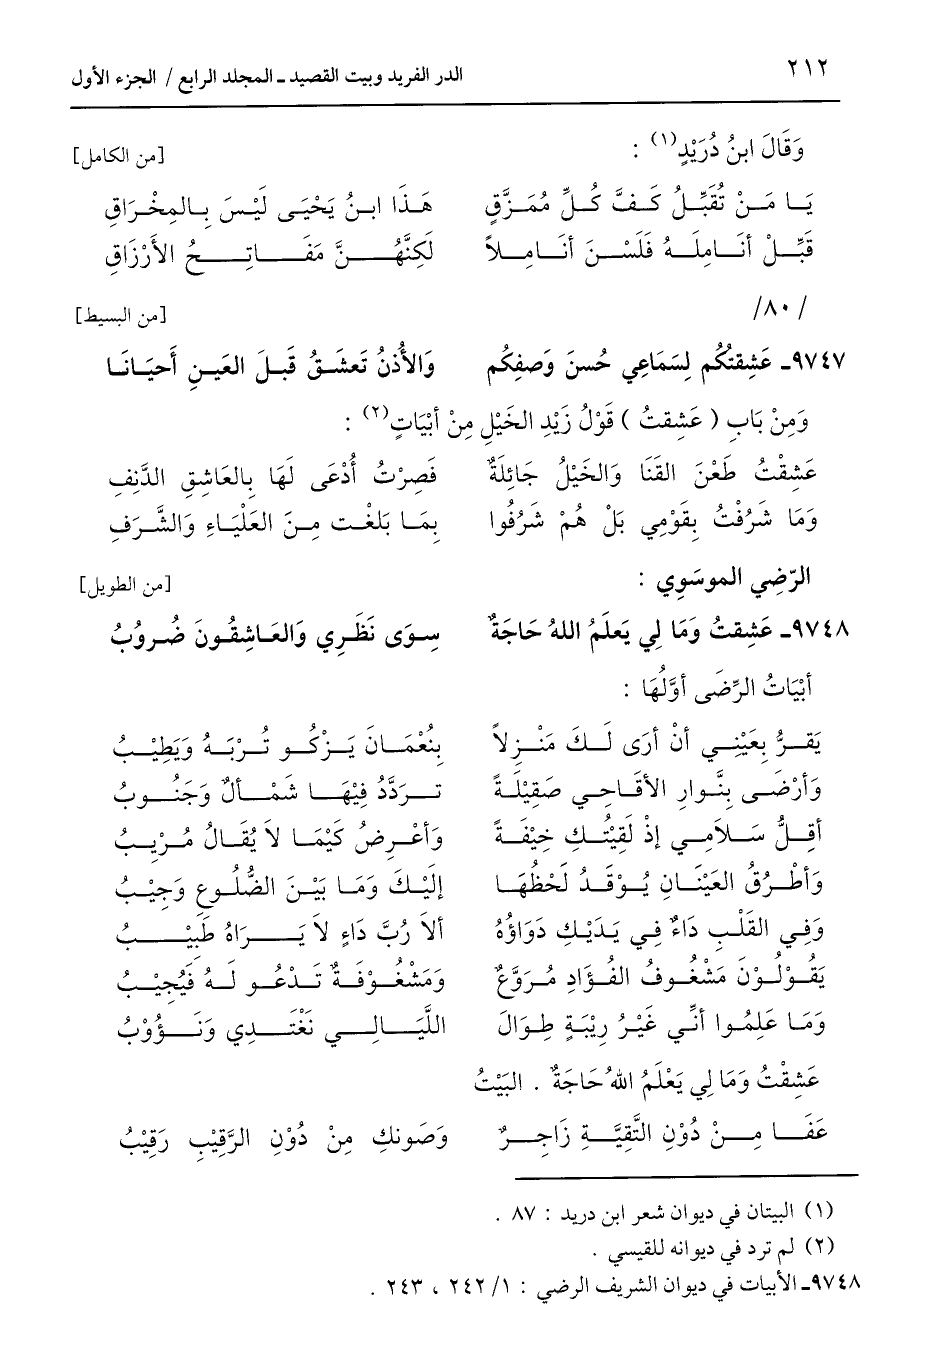 ٢١٢
الدر الفريد وبيت القصيد ـ المجلد الرابع / الجزء الأول
وَقَالَ ابنُ دُرَيْدٍ(١) : [من الكامل]
يَا مَنْ تُقَبِّلُ كَفَّ كُلِّ مُمَزَّقٍ هَذَا ابنُ يَحْيَى لَيْسَ بِالمِخْرَاقِ
قَبِّلْ أنَامِلَهُ فَلَسْنَ أنَامِلاً لَكِنَّهُنَّ مَفَاتِحُ الأَرْزَاقِ
/ ٨٠/ [من البسيط]
٩٧٤٧ـ عَشِقتُكُم لِسَمَاعِي حُسنَ وَصفِكُم وَالأُذنُ تَعشَقُ قَبلَ العَينِ أَحيَانَا
وَمِنْ بَابِ ( عَشِقتُ ) قَوْلُ زَيْدِ الخَيْلِ مِنْ أبْيَاتٍ(٢) :
عَشِقْتُ طَعْنَ القَنَا وَالخَيْلُ جَائِلَةٌ فَصِرْتُ أُدْعَى لَهَا بِالعَاشِقِ الدَّنِفِ
وَمَا شَرُفْتُ بِقَوْمِي بَلْ هُمْ شَرُفُوا بِمَا بَلَغْت مِنَ العَلْيَاءِ وَالشَّرَفِ
الرّضِي الموسَوِي : [من الطويل]
٩٧٤٨ـ عَشِقتُ وَمَا لِي يَعلَمُ اللهُ حَاجَةٌ سِوَى نَظَرِي وَالعَاشِقُونَ ضُروُبُ
أبْيَاتُ الرِّضَى أوَّلُهَا :
يَقَرُّ بِعَيْنِي أنْ أرَى لَكَ مَنْزِلاً بِنُعْمَانَ يَزْكُو تُرْبَهُ وَيَطِيْبُ
وَأرْضَى بِنَّوارِ الأقَاحِي صَقِيْلَةً تَردَّدُ فِيْهَا شَمْألٌ وَجَنُوبُ
أقِلُّ سَلاَمِي إذْ لَقِيْتُكِ خِيْفَةً وَأعْرِضُ كَيْمَا لاَ يُقَالُ مُرِيْبُ
وَأطْرُقُ العَيْنَانِ يُوْقَدُ لَحْظُهَا إلَيْكَ وَمَا بَيْنَ الضُّلُوعِ وَجِيْبُ
وَفِي القَلْبِ دَاءٌ فِي يَدَيْكِ دَوَاؤُهُ ألاَ رُبَّ دَاءٍ لاَ يَرَاهُ طَبِيْبُ
يَقُوْلُوْنَ مَشْغُوفُ الفُؤَادِ مُرَوَّعٌ وَمَشْغُوْفَةٌ تَدْعُو لَهُ فَيُجِيْبُ
وَمَا عَلِمُوا أنِّي غَيْرُ رِيْبَةٍ طِوَالَ اللَّيَالِي نَغْتَدِي وَنَؤُوْبُ
عَشِقْتُ وَمَا لِي يَعْلَمُ اللهُ حَاجَةٌ . البَيْتُ
عَفَا مِنْ دُوْنِ التَّقِيَّةِ زَاجِرٌ وَصَونكِ مِنْ دُوْنِ الرَّقِيْبِ رَقِيْبُ
(١) البيتان في ديوان شعر ابن دريد : ٨٧ .
(٢) لم ترد في ديوانه للقيسي .
٩٧٤٨ـ الأبيات في ديوان الشريف الرضي : ١/ ٢٤٢ ، ٢٤٣ .